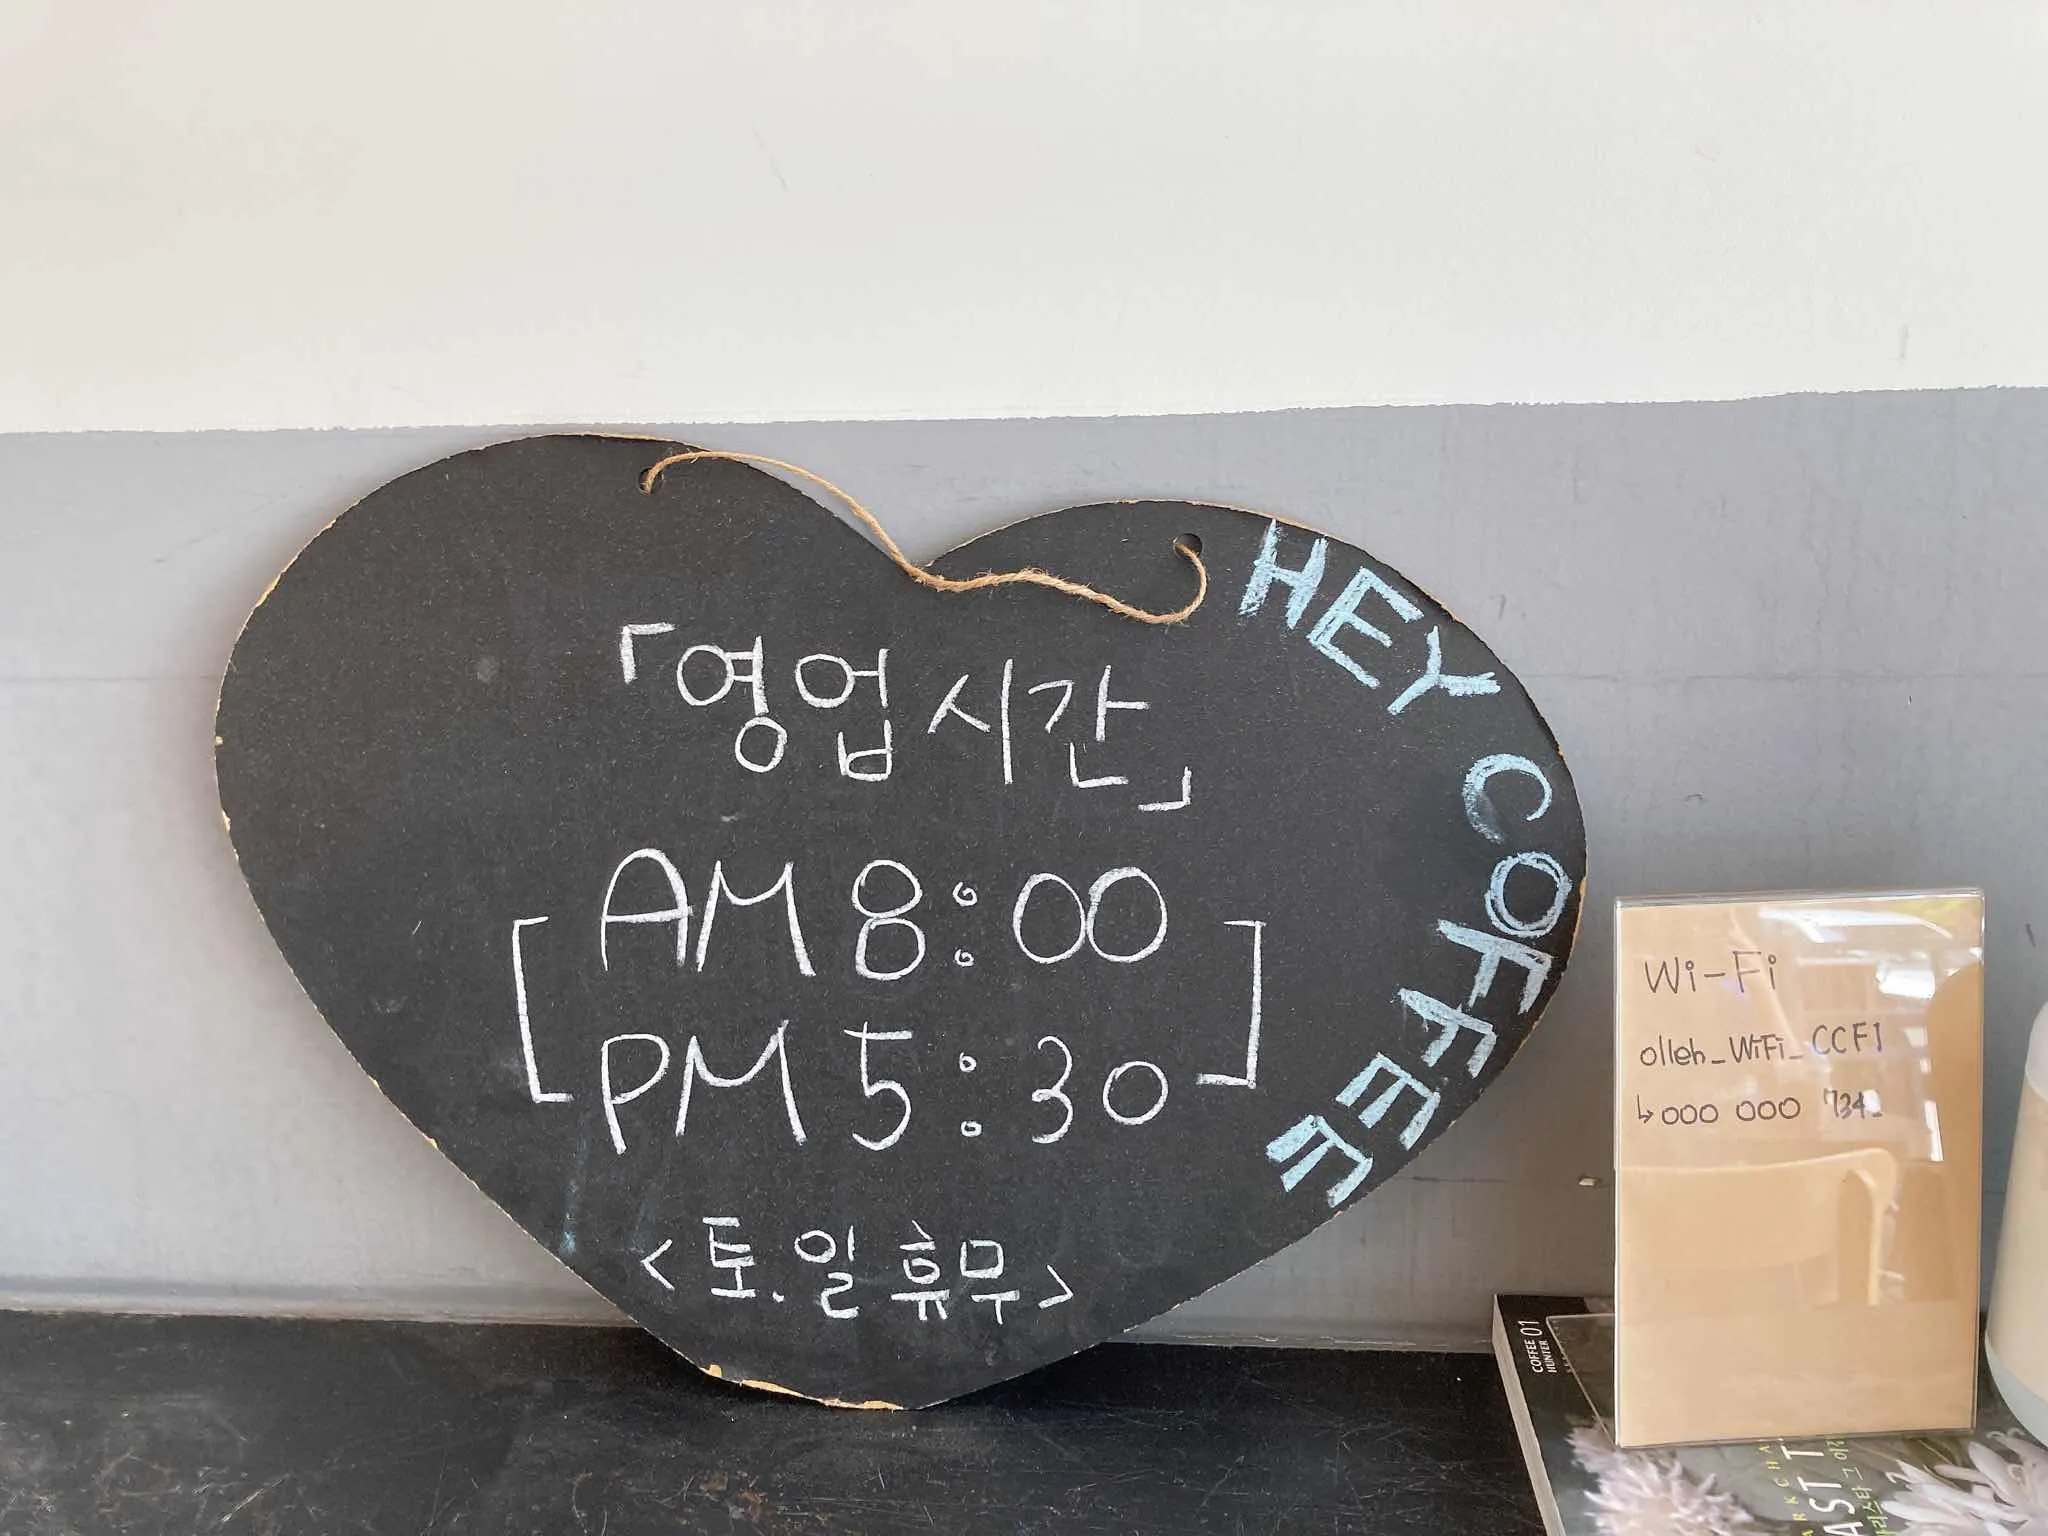 「영업시간」
AM 8:00
PM 5:30
<토.일 휴무>
HEY COFFEE
Wi-Fi
olleh_WiFi_CCF1
↳000 000
COFFEE
HUNTER 01